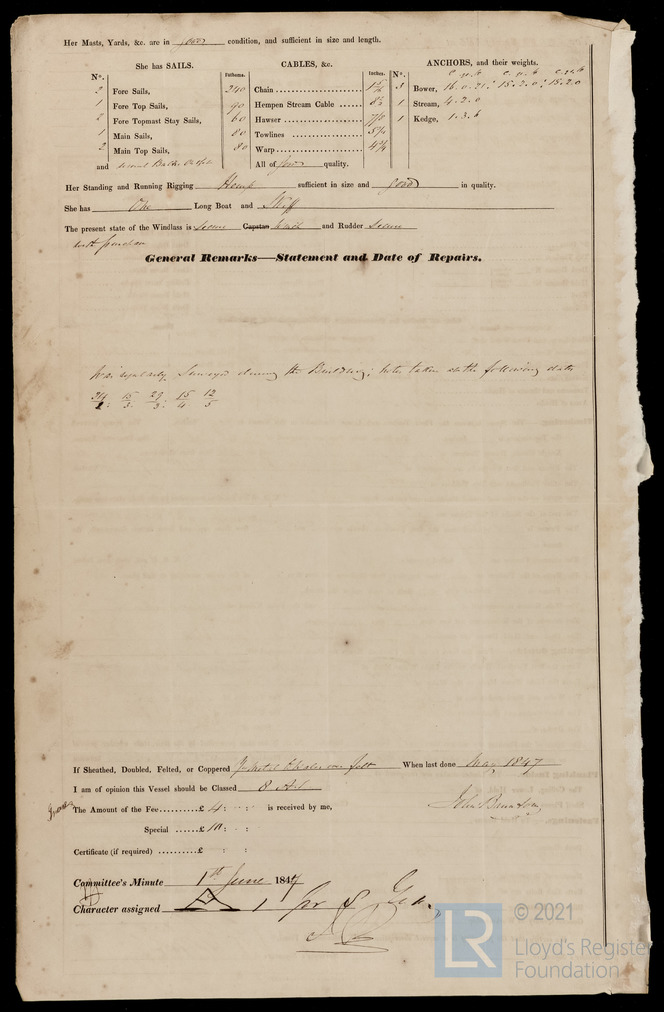 Her Masts, Yards, &c. are in good condition, and sufficient in size and length.
She has SAILS.
CABLES, &c.
ANCHORS, and their weights.
No.
Fathoms.
Inches.
No.
2 Fore Sails, 240
1 Fore Top Sails, 90
2 Fore Topmast Stay Sails, 60
1 Main Sails, 80
2 Main Top Sails, 80
and
Chain
Hempen Stream Cable
Hawser
Towlines
Warp
All of good quality.
3 Bower, 16.0.21 15.2.0 15.2.0
1 Stream, 4.2.0
1 Kedge, 1.3.6
Her Standing and Running Rigging Hemp sufficient in size and good in quality.
She has One Long Boat and Skiff
The present state of the Windlass is Secure Capstan Winch and Rudder Secure
with purchase
General Remarks—Statement and Date of Repairs.
Was regularly Surveyed during the Building; notes taken at the following dates
15/3. 29/3. 15/4 12/5
If Sheathed, Doubled, Felted, or Coppered Y. Metal over felt When last done May 1847
I am of opinion this Vessel should be Classed 8 A1
The Amount of the Fee..........£ 4 : : is received by me,
John Brunton
Special ......£ 10 : :
Certificate (if required) ..........£ : :
Committee's Minute 1st June 1847
Character assigned 1
LR
© 2021
Lloyd's Register
Foundation